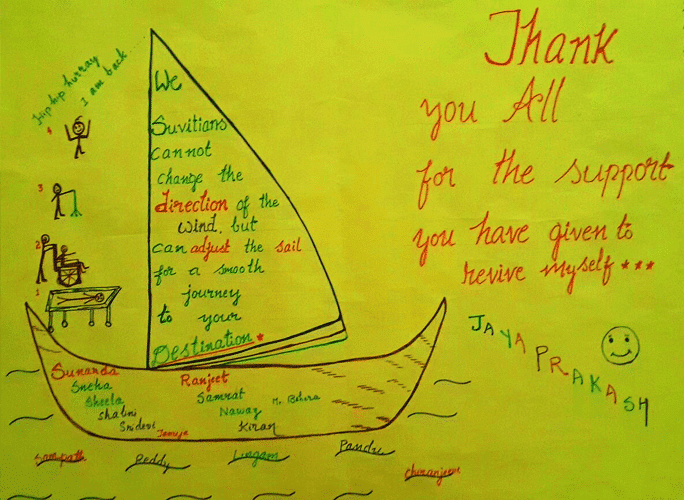 Hip hip hurray
I am back
4
3
2
1
We
Suvitians
cannot
change the
direction of the
wind, but
can adjust the sail
for a smooth
journey
to your
Destination *
Thank
you All
for the support
you have given to
revive myself ***
JAYA
PRAKASH
Sunanda
Sneha
Sheela
Shalini
Sridevi
Tanuja
Ranjeet
Samrat
Naway
Mr. Behera
Kiran
Sampath
Reddy
Lingam
Pandu
Chiranjeevi